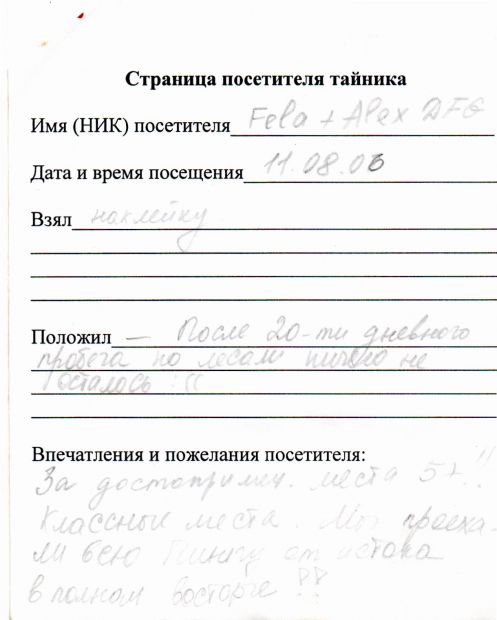 Страница посетителя тайника
Имя (НИК) посетителя Fela + Alex DFG
Дата и время посещения 11.08.06
Взял наклейку
Положил — После 20-ти дневного
пробега по лесам ничего не
осталось :((
Впечатления и пожелания посетителя:
За достопримеч. места 5+!!
Классные места. Мы проеха-
ли всю Пинегу от истока
в полном восторге !!